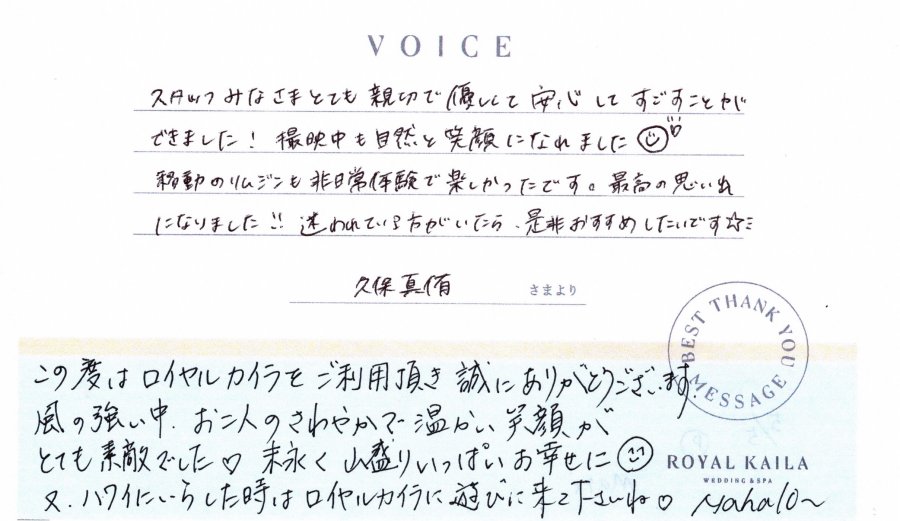 VOICE
スタッフみなさまとても親切で優しくて安心してすごすことがが
できました! 撮映中も自然と笑顔になれました
移動のリムジンも非日常体験で楽しかったです。最高の思い出
になりました!! 迷われている方がいたら、是非おすすめしたいです☆ミ
久保真侑 さまより
BEST THANK YOU MESSAGE
この度はロイヤルカイラをご利用頂き誠にありがとうございます。
風の強い中、お二人のさわやかで温かい笑顔が
とても素敵でした♡ 末永く山盛りいっぱいお幸せに
ROYAL KAILA
WEDDING & SPA
又、ハワイにいらした時はロイヤルカイラに遊びに来て下さいね♡ Mahalo~